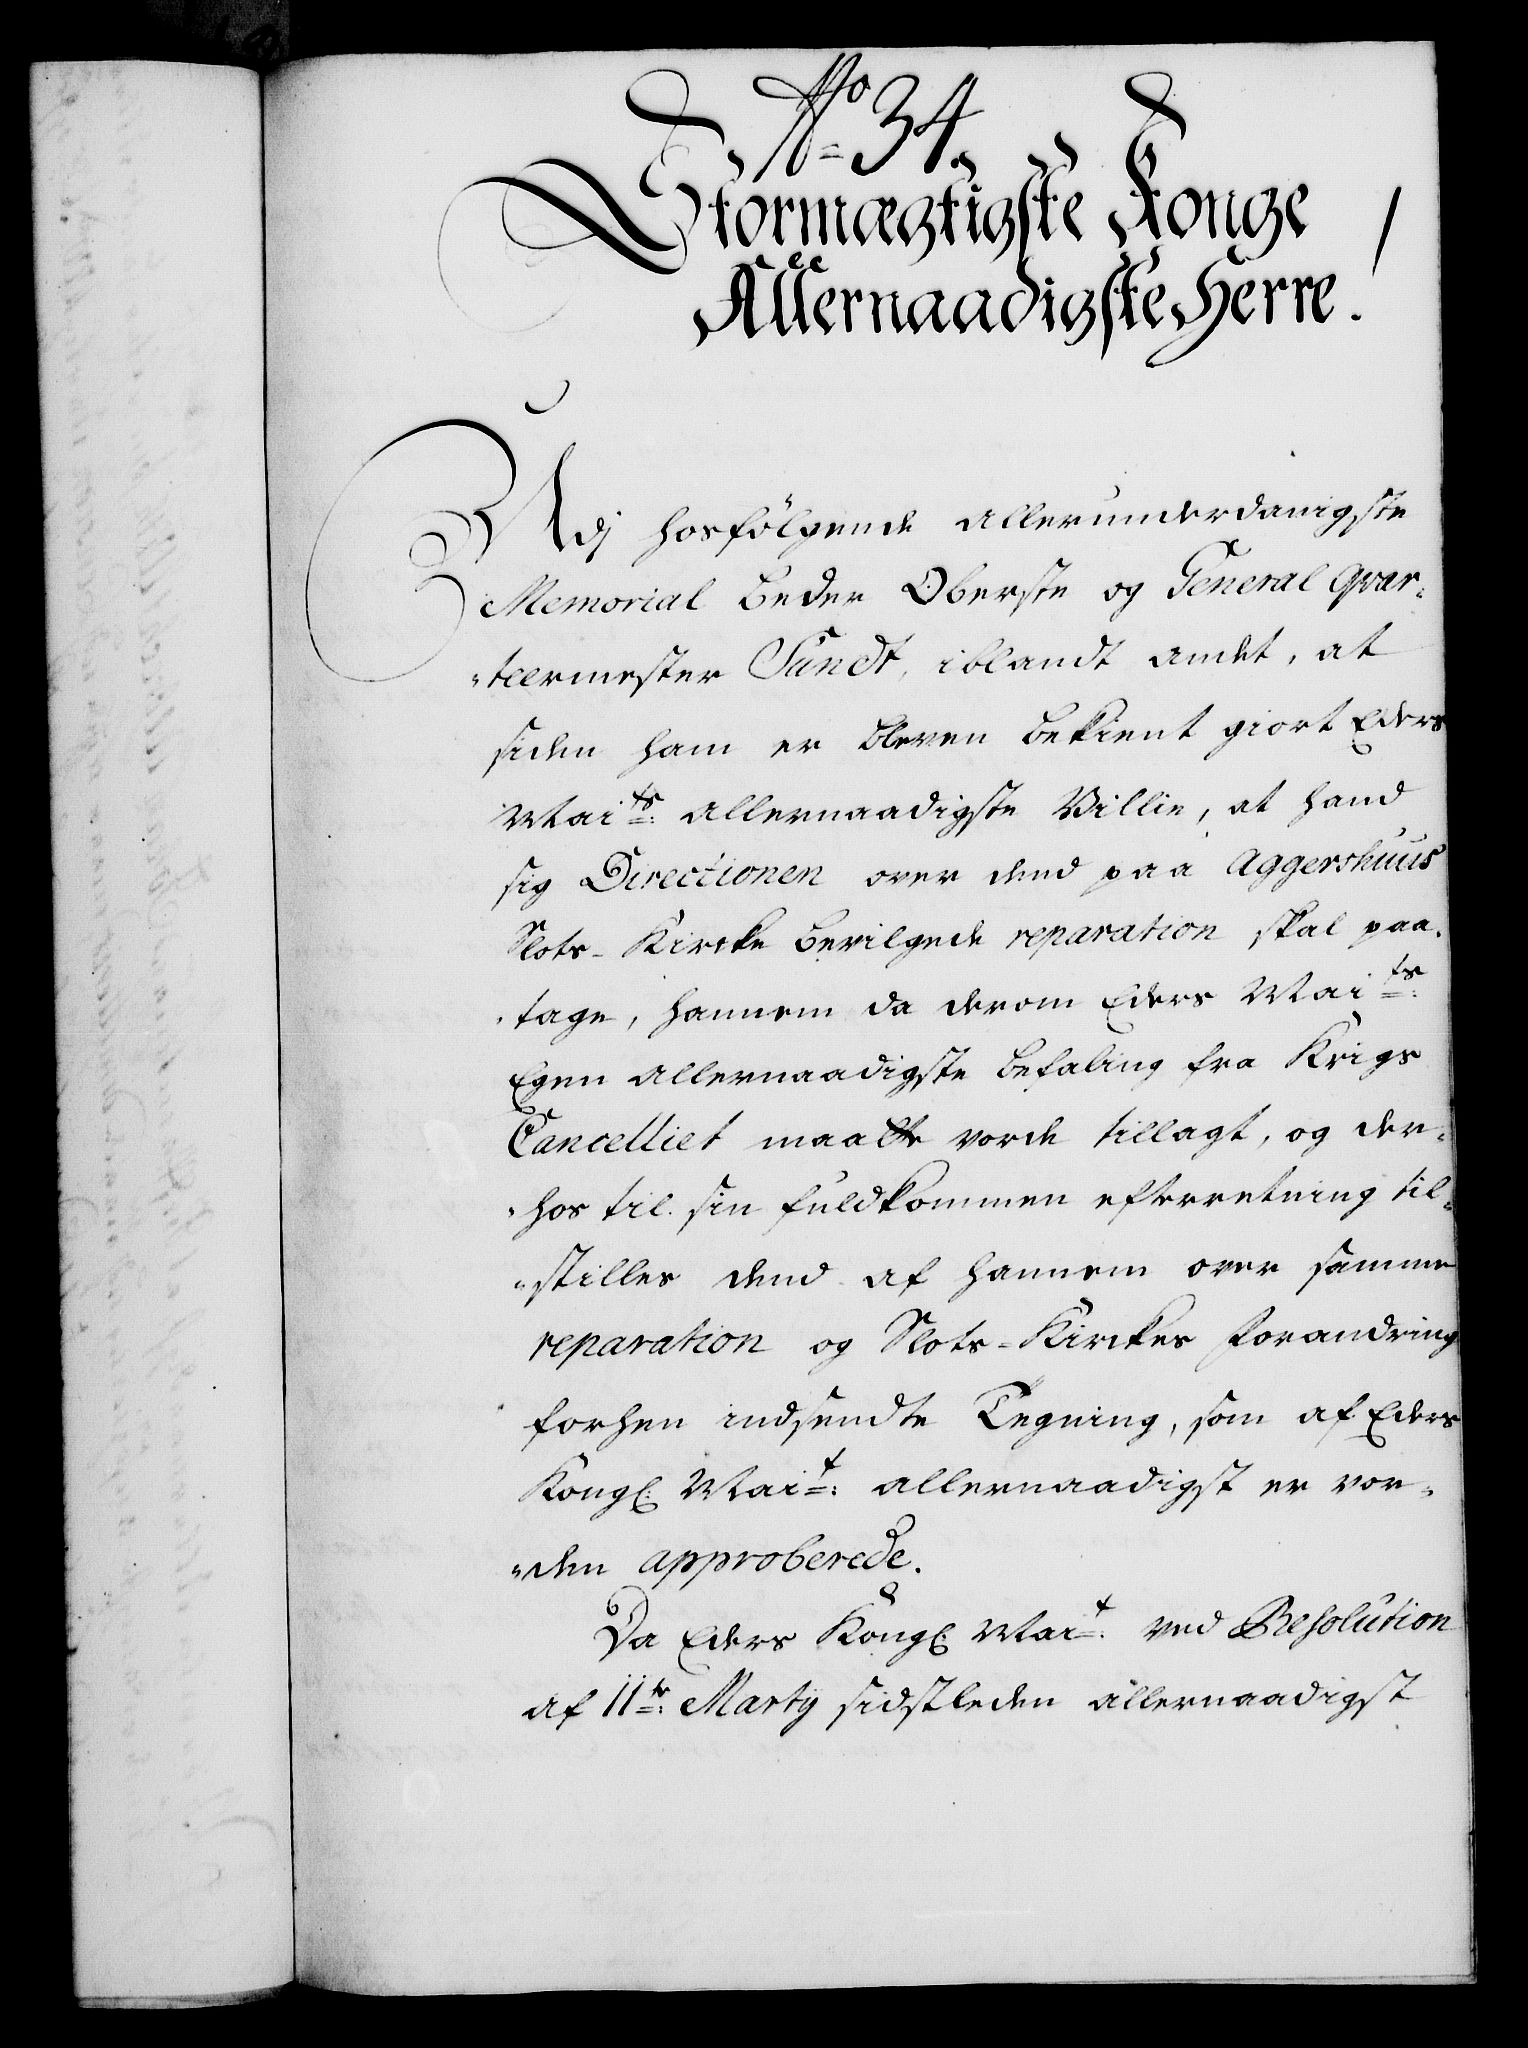 No 34.
Stormægtigste Konge
Allernaadigste Herre!
Udj hosfölgende allerunderdanigste
Memorial beder Oberste og General Qvar-
-teermester Sundt, iblandt andet, at
siden ham er bleven bekient giort Eders
Maits: allernaadigste Villie, at hand
sig Directionen over dend paa Aggershuus
Slots-Kircke bevilgede reparation skal paa-
-tage, hannem da derom Eders Maits:
Egen allernaadigste befaling fra Krigs
Cancelliet maatte vorde tillagt, og der-
-hos til sin fuldkommen efterretning til-
-stilles dend af hannem over samme
reparation og Slots-Kirckes forandring
forhen indsendte Tegning, som af Eders
Kongl: Mait: allernaadigst er vor-
-den approberede.
Da Eders Kongl: Mait: ved Resolution
af 11te: Martij sidstleden allernaadigst